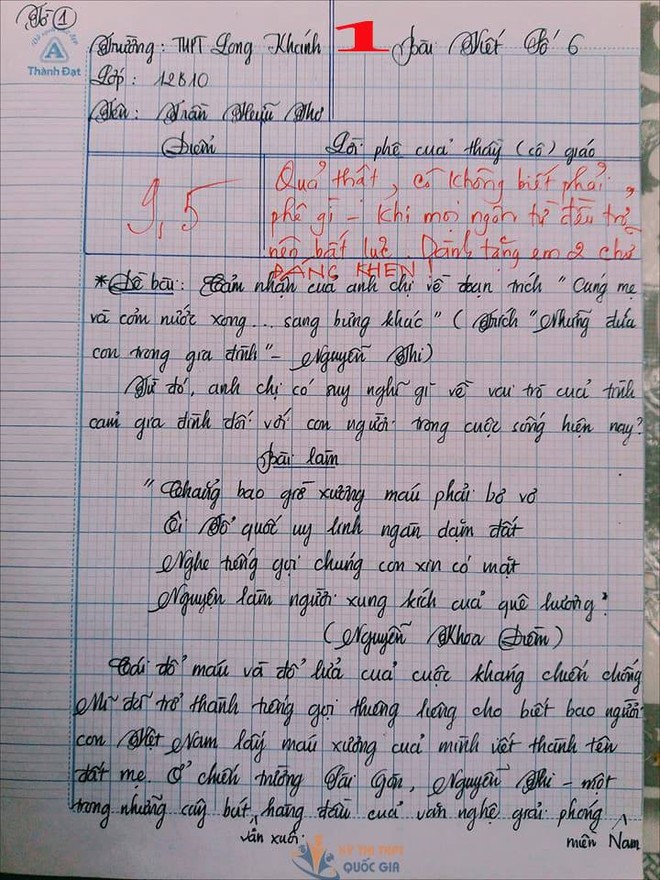 Tờ 1
Thành Đạt
Trường: THPT Long Khánh
1
Bài Viết Số 6
Lớp: 12B10
Tên: Trần Hữu Thơ
Điểm
Lời phê của thầy (cô) giáo
9,5
Quả thật, cô không biết phải
phê gì - khi mọi ngôn từ đều trở
nên bất lực. Dành tặng em 2 chữ
ĐÁNG KHEN!
*Đề bài: Cảm nhận của anh chị về đoạn trích "Cúng mẹ
và cơm nước xong... sang bưng khác" (Trích "Những đứa
con trong gia đình" - Nguyễn Thi)
Từ đó, anh chị có suy nghĩ gì về vai trò của tình
cảm gia đình đối với con người trong cuộc sống hiện nay?
Bài làm
"Chẳng bao giờ xương máu phải bơ vơ
Ôi Tổ quốc uy linh ngàn dặm đất
Nghe tiếng gọi chúng con xin có mặt
Nguyện làm người xung kích của quê hương"
(Nguyễn Khoa Điềm)
Cái đổ máu và đổ lửa của cuộc kháng chiến chống
Mĩ đã trở thành tiếng gọi thiêng liêng cho biết bao người
con Việt Nam lấy máu xương của mình viết thành tên
đất mẹ. Ở chiến trường Sài Gòn, Nguyễn Thi - một
trong những cây bút hàng đầu của văn nghệ giải phóng
văn xuôi
miền Nam
KỲ THI THPT
QUỐC GIA